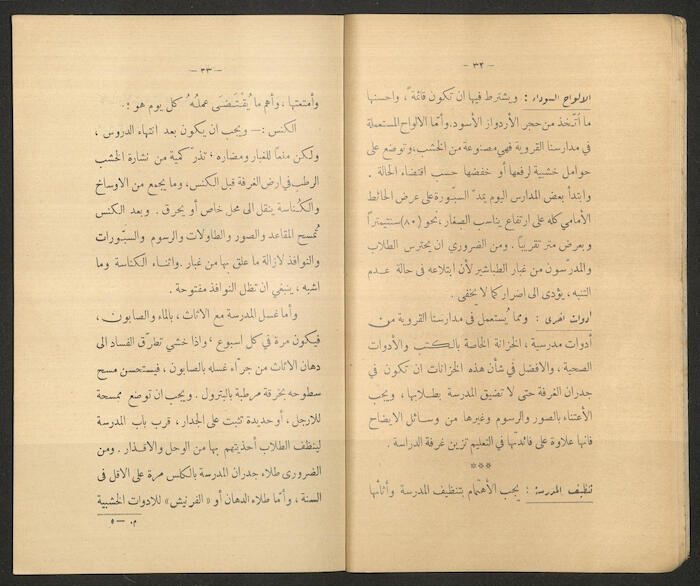 — ٣٢ —
الالواح السوداء : ويشترط فيها ان تكون قائمة ً، واحسنها
ما اتّخذ من حجر الأردواز الأسود. وأمّا الالواح المستعملة
في مدارسنا القروية فهي مصنوعة من الخشب، وتوضع على
حوامل خشبية لرفعها أو خفضها حسب اقتضاء الحالة .
وابتدأ بعض المدارس اليوم يمدّ السبّورة على عرض الحائط
الأمامي كله على ارتفاع يناسب الصغار، نحو (٨٠) سنتيمتراً
وبعرض متر تقريباً . ومن الضروري ان يحترس الطلاب
والمدرّسون من غبار الطباشير لأن ابتلاعه في حالة عدم
التنبه ، يؤدى الى اضرار كما لا يخفى .
ادوات اخرى : ومما يُستعمل في مدارسنا القروية من
أدوات مدرسية ، الخزانة الخاصة بالكتب والأدوات
الصحية ، والافضل في شأن هذه الخزانات ان تكون في
جدران الغرفة حتى لا تضيق المدرسة بطلابها ، ويجب
الأعتناء بالصور والرسوم وغيرها من وسائل الايضاح
فانها علاوة على فائدتها في التعليم تزين غرفة الدراسة .
***
تنظيف المدرسة : يجب الأهتمام بتنظيف المدرسة وأثاثها
— ٣٣ —
وأمتعتها ، وأهم ما يُقْتَضَى عملهُ كل يوم هو :
الكنس :— ويجب ان يكون بعد انتهاء الدروس ،
ولكن منعاً للغبار ومضاره ، تذرّ كمية من نشارة الخشب
الرطب في ارض الغرفة قبل الكنس ، وما يجمع من الاوساخ
والكُناسة ينقل الى محل خاص أو يحرق . وبعد الكنس
تُمسح المقاعد والصور والطاولات والرسوم والسبّورات
والنوافذ لازالة ما علق بها من غبار . واثناء الكناسة وما
اشبه ، ينبغي ان تظل النوافذ مفتوحة .
وأما غسل المدرسة مع الاثاث ، بالماء والصابون ،
فيكون مرة في كل اسبوع ، واذا خشي تطرّق الفساد الى
دهان الاثاث من جرّاء غسله بالصابون ، فيستحسن مسح
سطوحه بخرقة مرطبة بالبترول . ويجب ان توضع ممسحة
للارجل ، أو حديدة تثبت على الجدار ، قرب باب المدرسة
لينظف الطلاب أحذيتهم بها من الوحل والاقذار . ومن
الضرورى طلاء جدران المدرسة بالكلس مرة على الاقل فى
السنة ، وأمّا طلاء الدهان أو « الفرنيش » للادوات الخشبية
م. — ٥